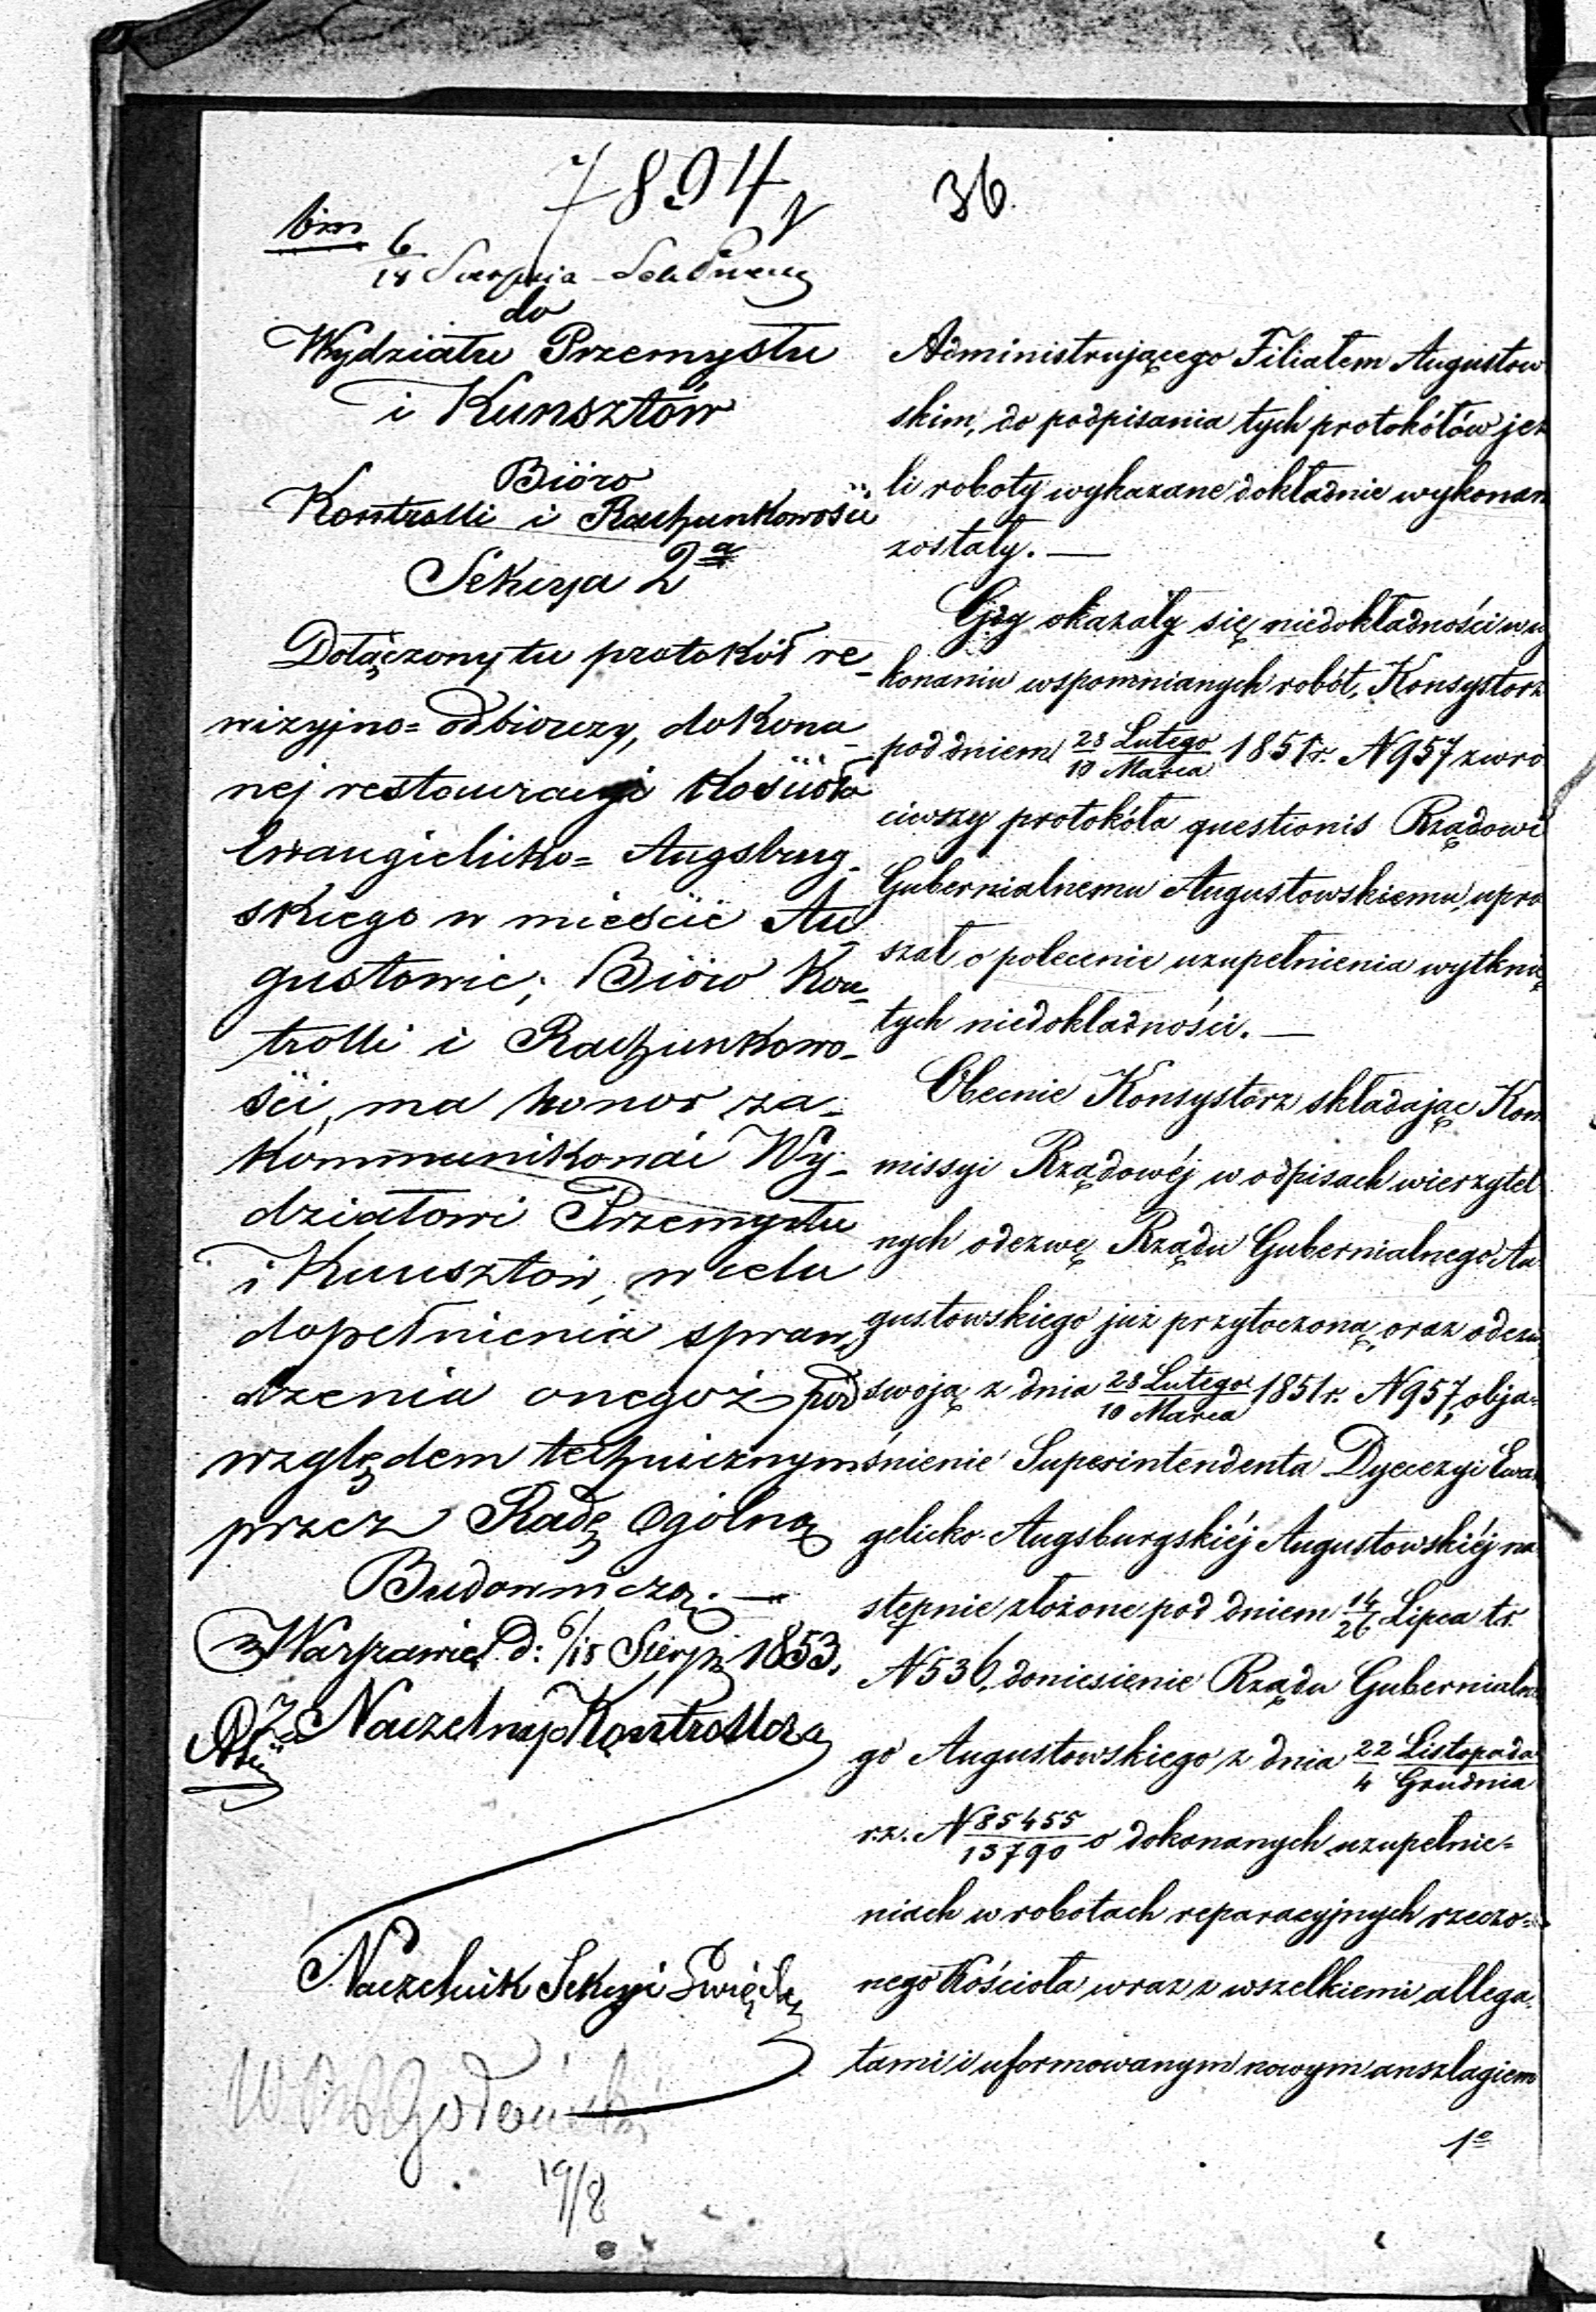 7894
36.
6/18 Sierpnia
do
Wydziału Przemysłu
i Kunsztów
Bióro
Kontrolli i Rachunkowości
Sekcya 2a
Dołączony tu protokół re-
wizyjno-odbiorczy, dokona-
nej restauracyi Kościoła
Ewangielicko-Augsburg-
skiego w mieście Au-
gustowie; Bióro Kon-
trolli i Rachunkowo-
ści, ma honor za-
kommunikować Wy-
działowi Przemysłu
i Kunsztów, w celu
dopełnienia spraw-
dzenia onegoż pod
względem technicznym
przez Radę Ogólną
Budowniczą. —
w Warszawie d: 6/18 Sierp: 1853.
Naczelnego Kontrollera
Naczelnik Sekcyi
19/8
Administrującego Filiałem Augustow
skim, do podpisania tych protokółów jeż
li roboty wykazane dokładnie wykonan
zostały. —
Gdy okazały się niedokładności w wy
konaniu wspomnianych robót, Konsystorz
pod dniem 28 Lutego/10 Marca 1851 r. N 957 zwró
ciwszy protokóła questionis Rządowi
Gubernialnemu Augustowskiemu, upra
szał o polecenie uzupełnienia wytknię
tych niedokładności. —
Obecnie Konsystorz składając Kom
missyi Rządowéj w odpisach wierzytel
nych odezwę Rządu Gubernialnego Au
gustowskiego już przytoczoną, oraz odezw
swoją z dnia 28 Lutego/10 Marca 1851 r. N 957, obja=
śnienie Superintendenta Dyecezyi Ewan
gelicko-Augsburgskiéj Augustowskiéj na
stępnie złożone pod dniem 14/26 Lipca t.r.
N 536, doniesienie Rządu Gubernialne
go Augustowskiego z dnia 22 Listopada/4 Grudnia
r.z. N 85455/13790 o dokonanych uzupełnie=
niach w robotach reparacyjnych rzeczo=
nego Kościoła wraz z wszelkiemi allega
tami i uformowanym nowym anszlagiem
1o